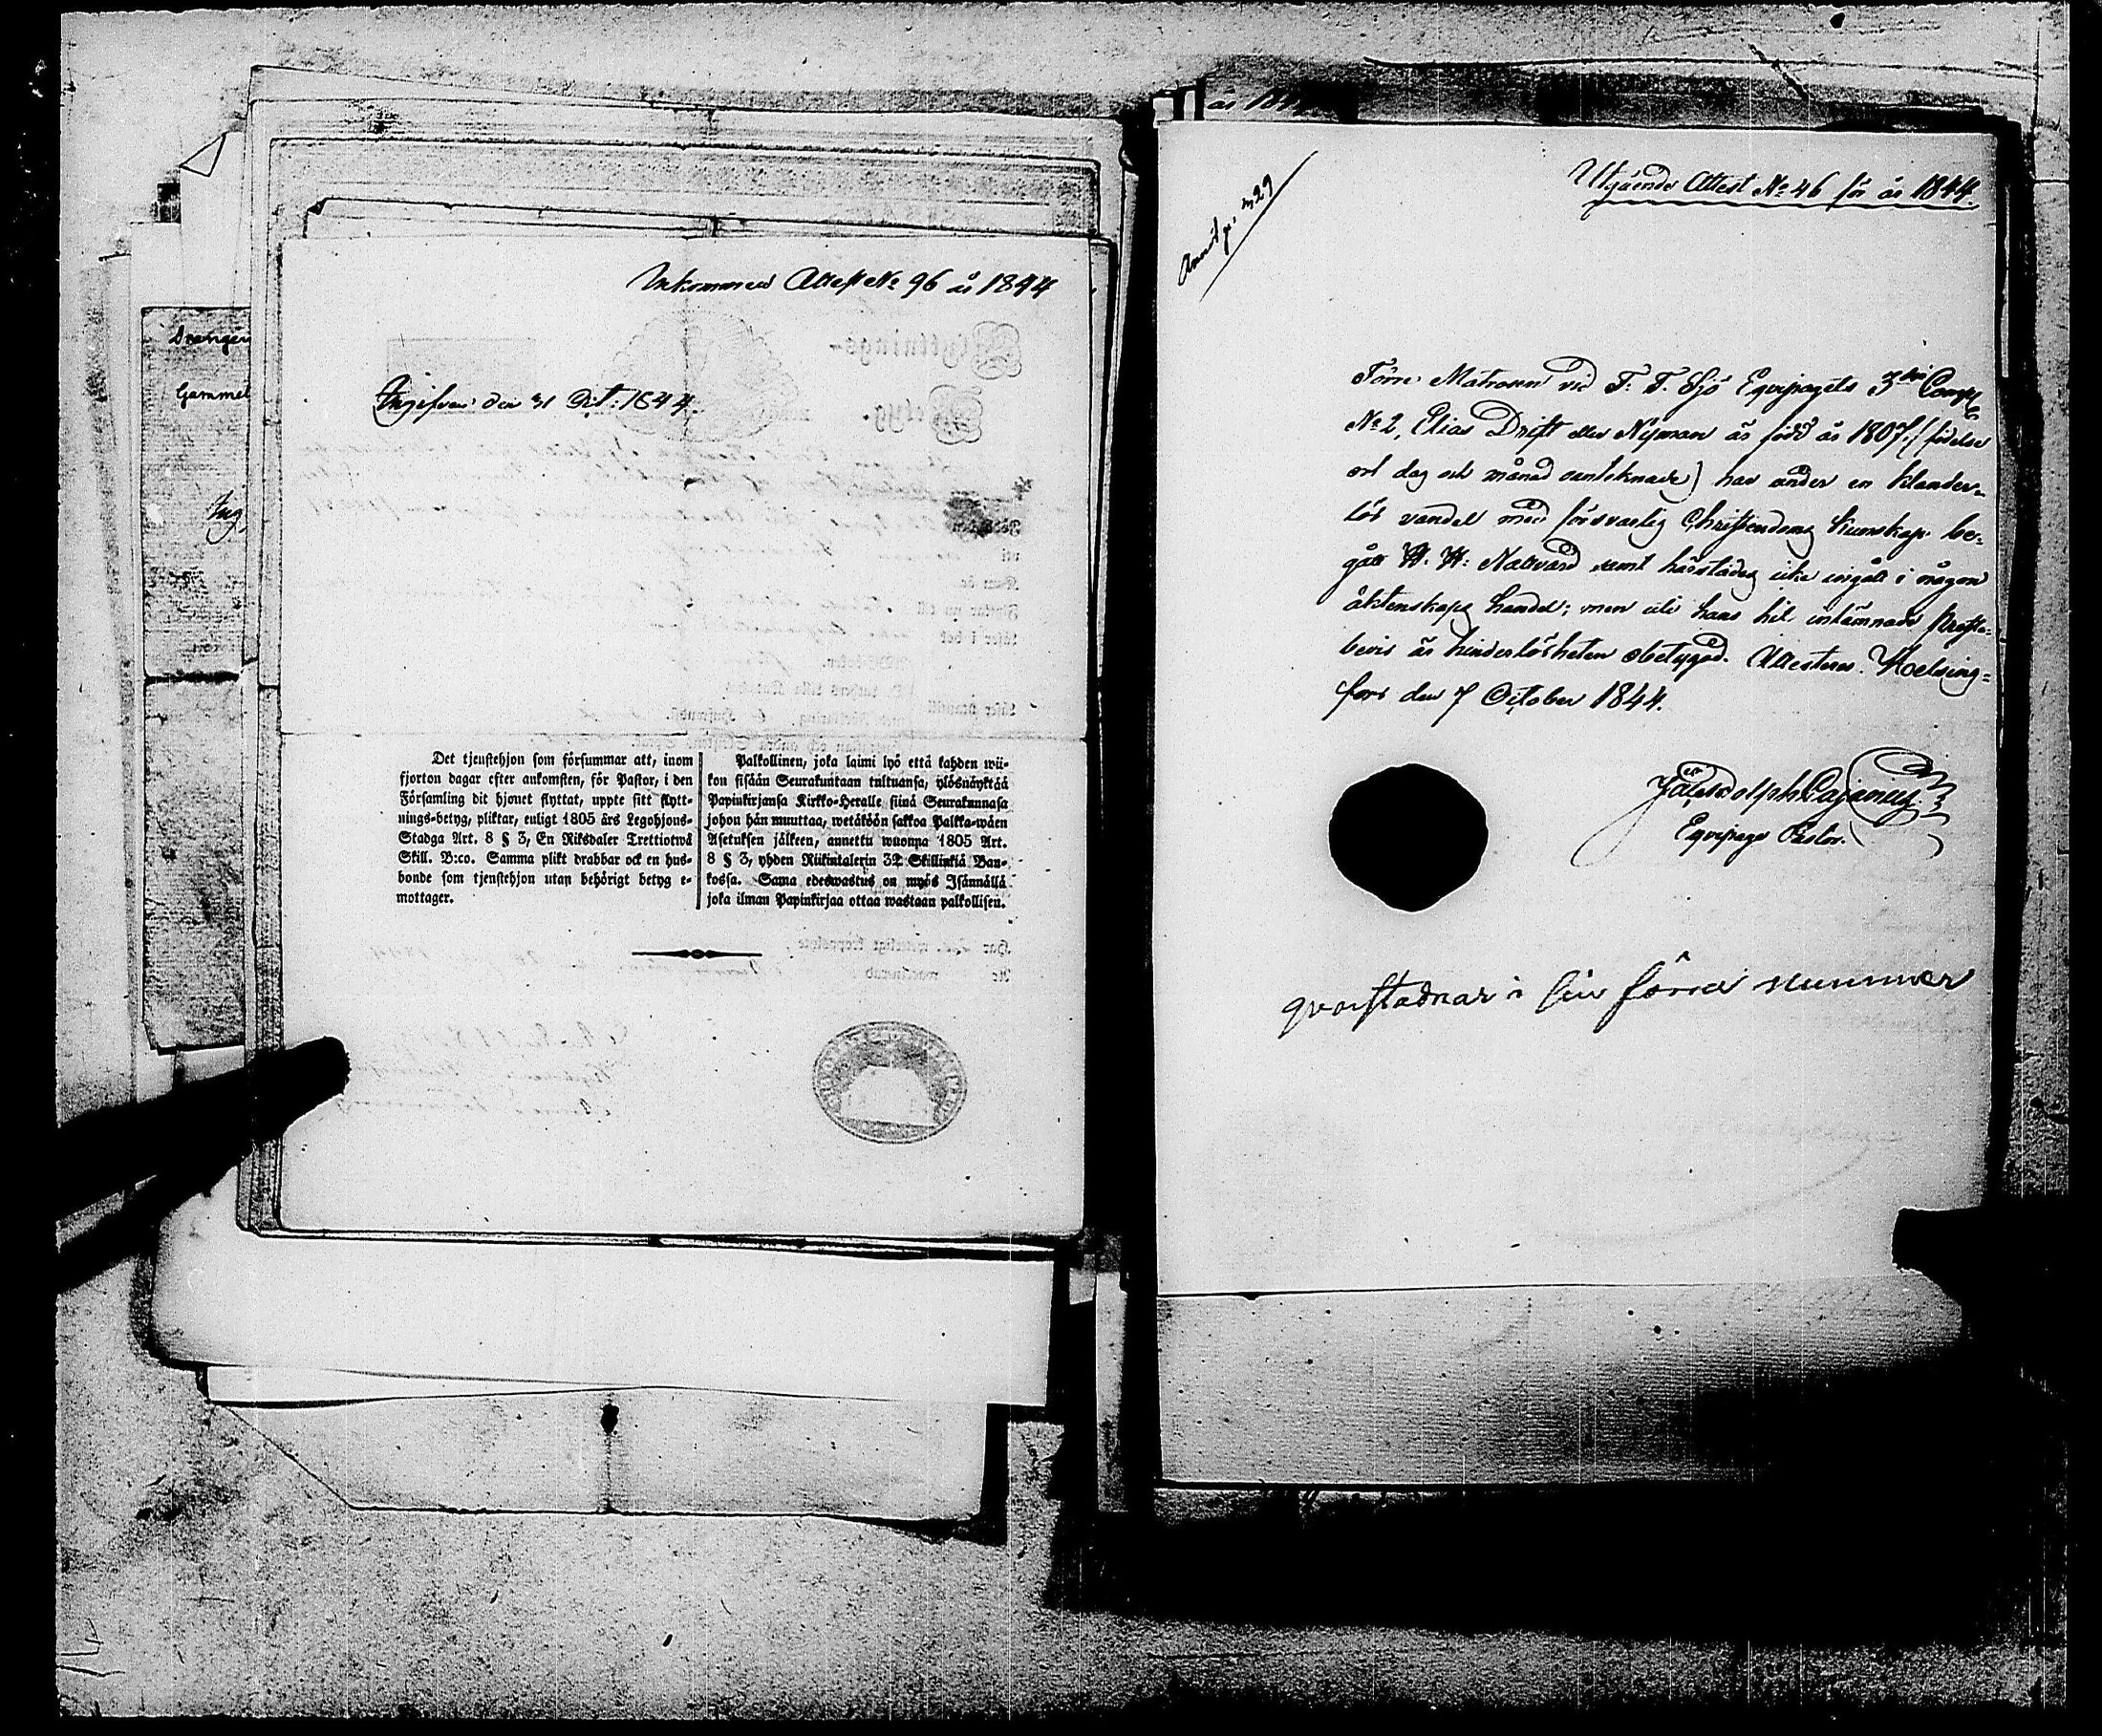 Inkommen Attest No 96 år 1844
Ingifven den 31 Oct: 1844.
Det tjenstehjon som försummar att, inom
fjorton dagar efter ankomsten, för Pastor, i den
Församling dit hjonet flyttat, uppte sitt flytt-
nings-betyg, pliktar, enligt 1805 års Legohjons-
Stadga Art. 8 § 3, En Riksdaler Trettiotwå
Skill. B:co. Samma plikt drabbar ock en hus-
bonde som tjenstehjon utan behörigt betyg e-
mottager.
Palkollinen, joka laimi lyö että kahden wii-
kon sisään Seurakuntaan tultuansa, ylösnäyttää
Papinkirjansa Kirkko-Herralle siinä Seurakunnasa
johon hän muuttaa, wetäköön sakkoa Palkka-wäen
Asetuksen jälkeen, annettu wuonna 1805 Art.
8 § 3, yhden Riikintalerin 32 Skillinkiä Ban-
kossa. Sama edeswastus on myös Isännällä
joka ilman Papinkirjaa ottaa wastaan palkollisen.
Drengen
Gammel
Ing
år 184
Utgående Attest No 46 för år 1844.
29
Förre Matrosen vid F. F. Sjö Eqvipagets 3die Comp
No 2, Elias Drift eller Nyman är född år 1807. (födelse
ort dag och månad oantecknade) har under en klander-
lös vandel med försvarlig Christendoms kunskap be-
gått H. H: Nattvard samt härstädes icke ingått i någon
äktenskaps handel; men uti hans hit inlämnade Prest-
bevis är hinderlösheten obetygad. Attesteras. Helsing-
fors den 7 October 1844.
Cajanus
Eqvipage Pastor.
qvarstadnar i sin förra nummer